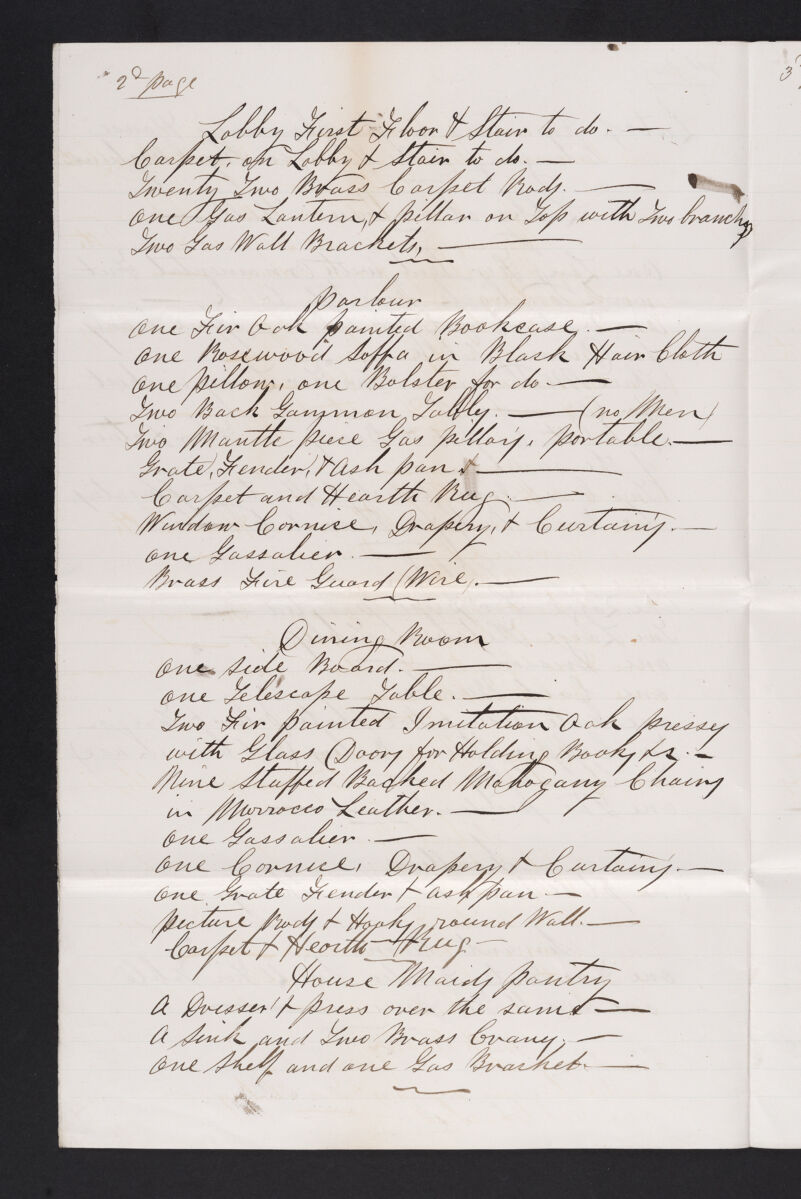 2d page
3d
Lobby First Floor & Stair to do. —
Carpet, on Lobby & Stair to do. —
Twenty Two Brass Carpet Rods. —
One Gas Lantern, & pillar on Top with Two branches
Two Gas Wall Brackets, —
Parlour
One Fir Oak painted Bookcase. —
One Rosewood Soffa in Black Hair Cloth
One pillow, one Bolster for do —
Two Back Gammon Tables. — (no Men)
Two Mantle piece Gas pillars, portable. —
Grate, Fender, & Ash pan. —
Carpet and Hearth Rug. —
Window Cornice, Drapery, & Curtains. —
One Gassalier. —
Brass Fire Guard (Wire). —
Dining Room
One Side Board. —
One Telescope Table. —
Two Fir painted Imitation Oak presses
with Glass Doors for Holding Books &c. —
Nine Stuffed Backed Mahogany Chairs
in Morrocco Leather. —
One Gassalier. —
One Cornice, Drapery & Curtains. —
One Grate Fender & ash pan. —
Picture Rods & Hooks round Wall. —
Carpet & Hearth Rug —
House Maids pantry
A Dresser & press over the same —
A Sink and Two Brass Crans. —
One Shelf and one Gas Bracket. —